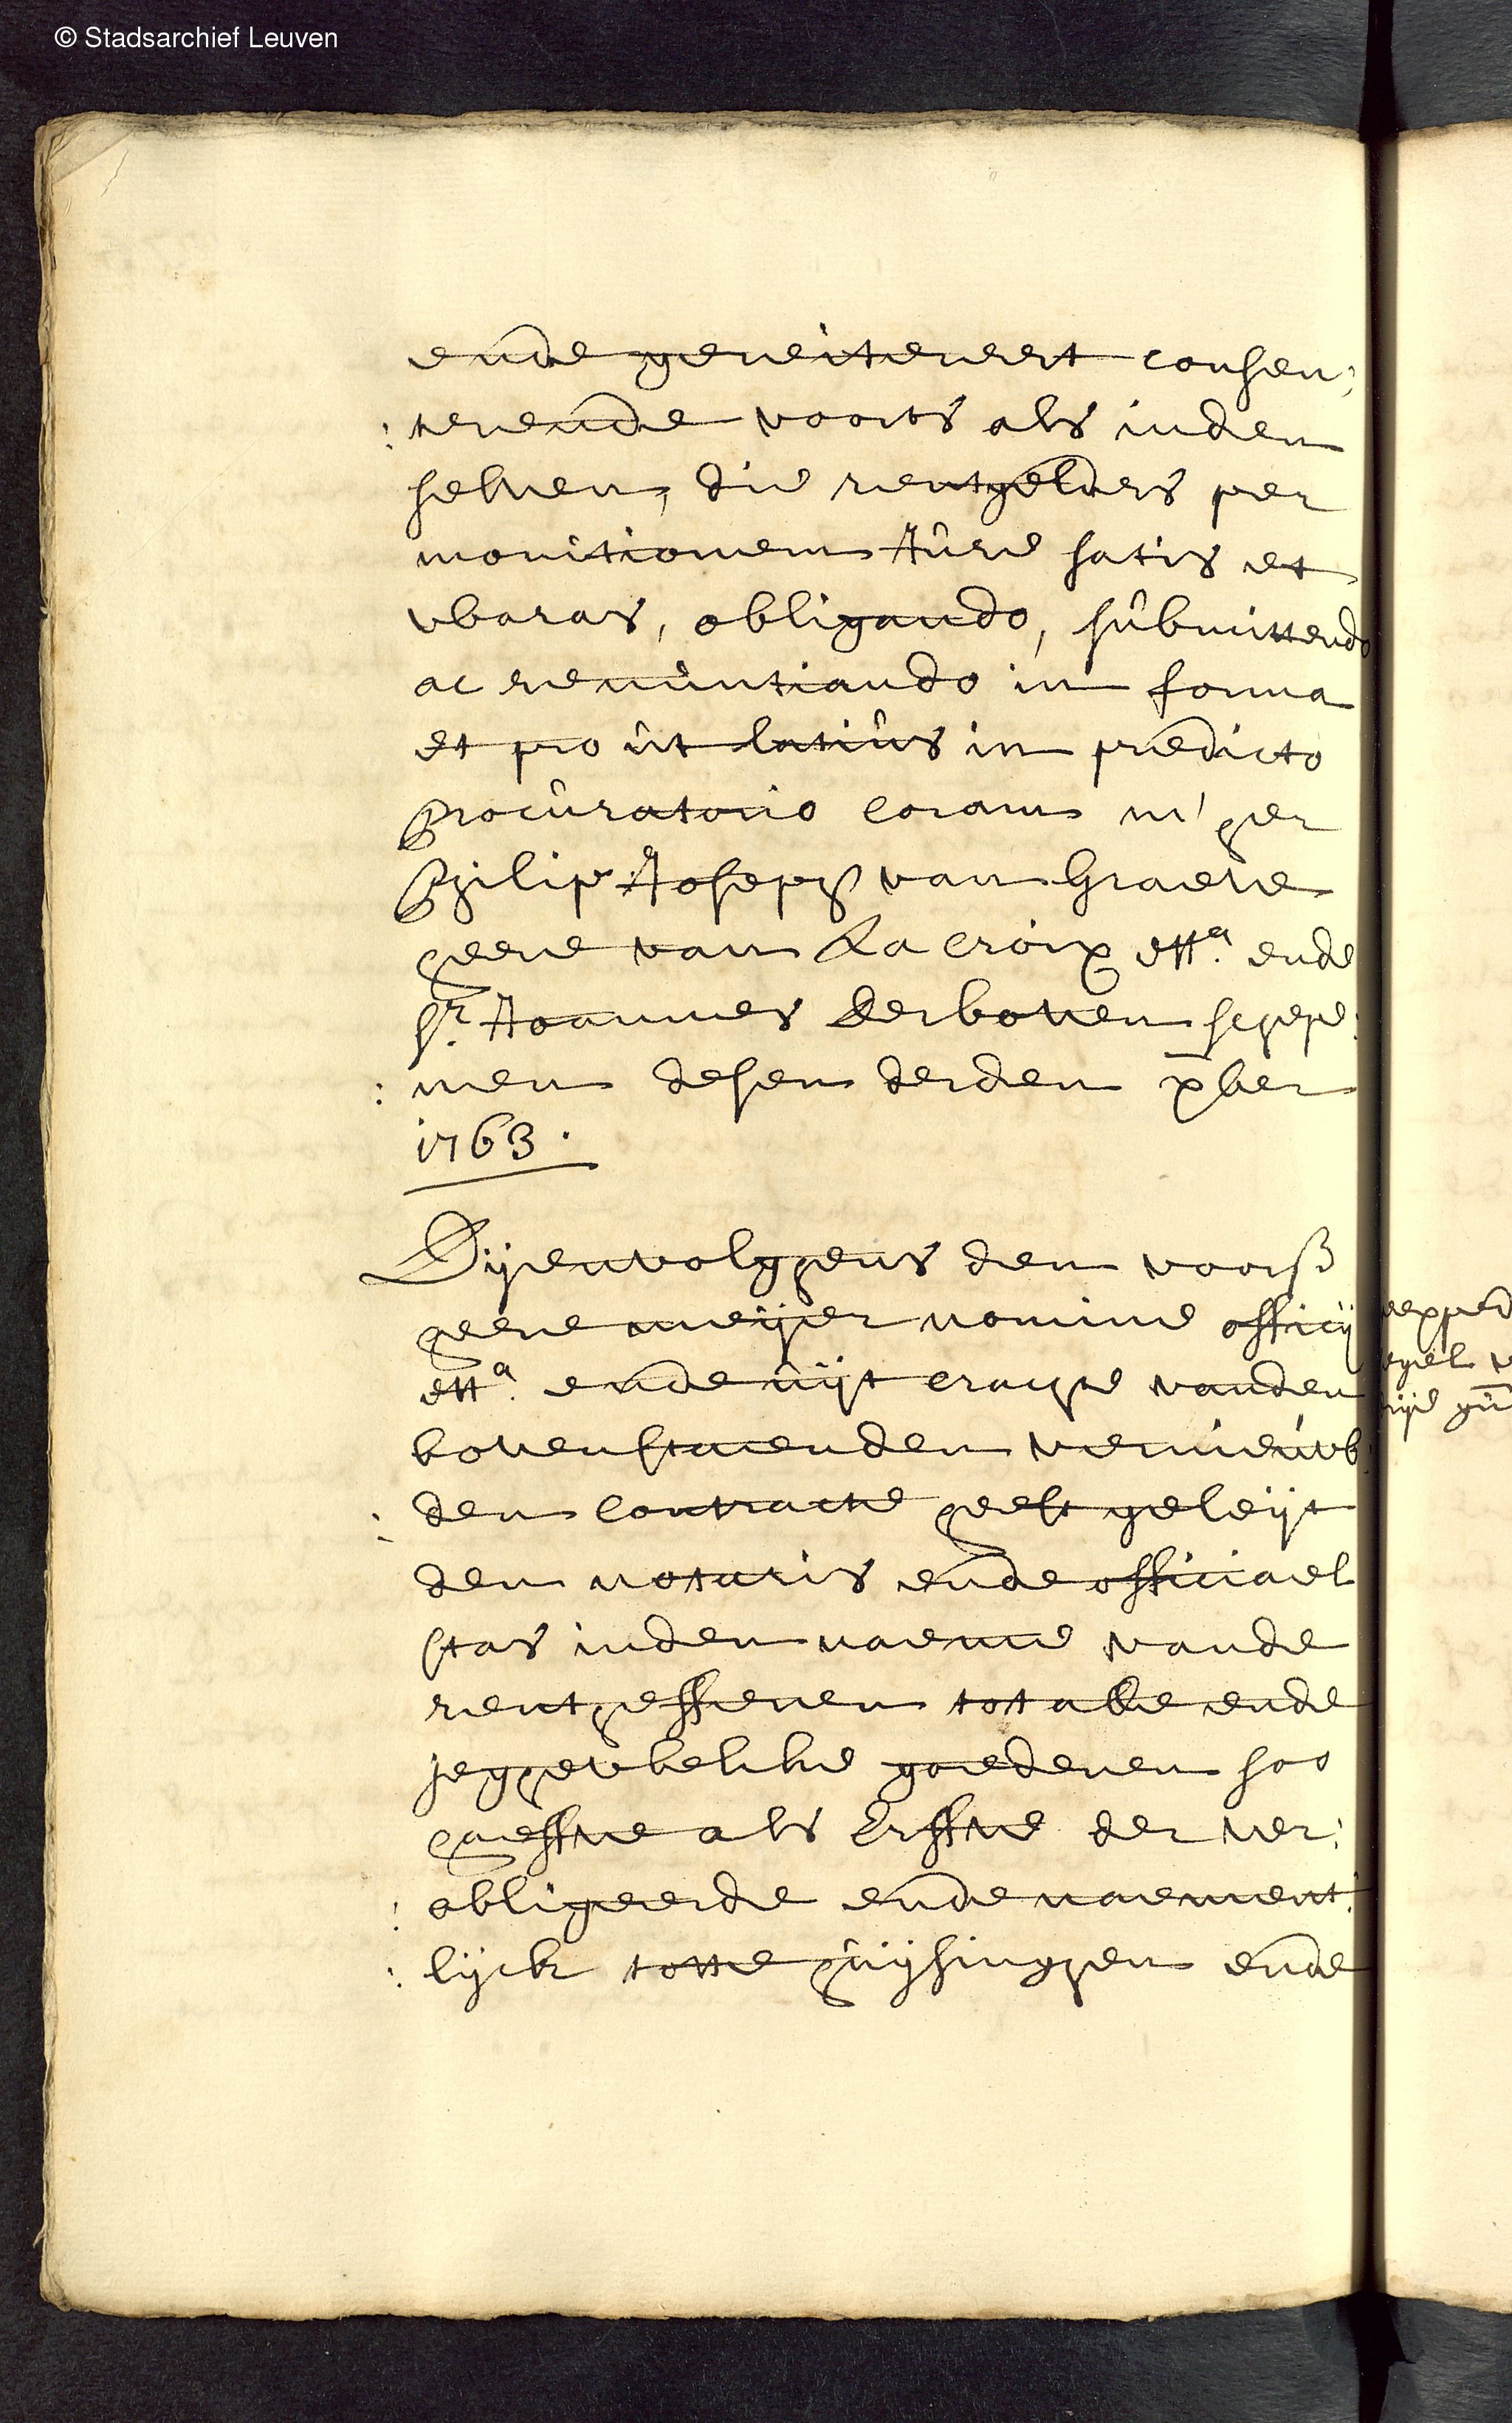 © Stadsarchief Leuven
ende gereitereert consen:
:terende voorts als inden
selven, die rentgelders per
monitionem Jure satis et
waras, obligando, submittendo
ac renuntiando in forma
et pro ut latius in predicto
procuratorio coram m'her
Philip Joseph van Graeve
heere van La Croix etta. ende
sr. Joannes Derboven schepe:
:nen desen derden xber
1763.
Dijenvolghens den voors
heere meijer nomine officij
etta. ende uijt crachte vanden
bovenstaenden vernieuwb:
:den contracte heeft geleijt
den notaris ende officiael
stas inden naeme vande
rentheffenen tot alle ende
jeghewelcke goederen soo
haeffve als Erffve der ver:
:obligeerde ende naement:
:lijck totte huijsinghen ende